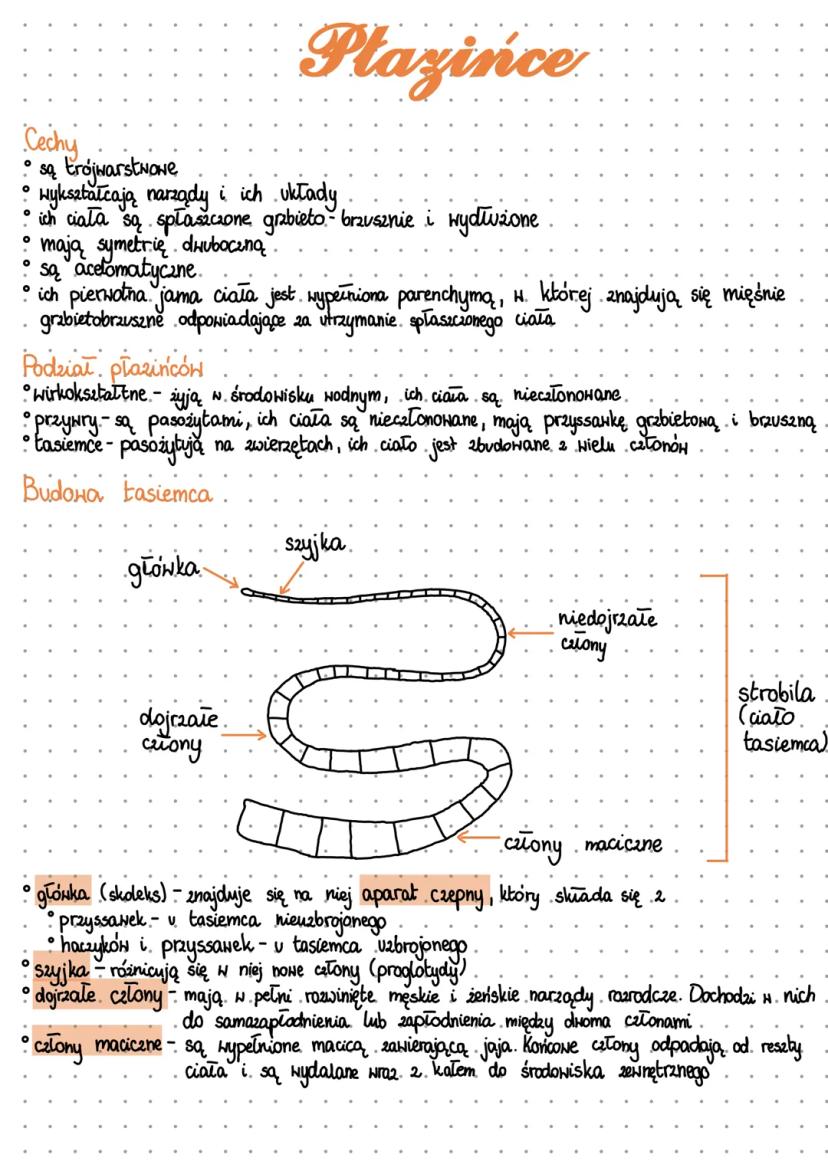 Płazińce
Cechy
° są trójwarstwowe
° wykształcają narządy i ich układy
° ich ciała są spłaszczone grzbieto-brzusznie i wydłużone
° mają symetrię dwuboczną
° są acelomatyczne
° ich pierwotna jama ciała jest wypełniona parenchymą, w której znajdują się mięśnie
grzbietobrzuszne odpowiadające za utrzymanie spłaszczonego ciała
Podział płazińców
° wirkokształtne - żyją w środowisku wodnym, ich ciała są nieczłonowane
° przywry - są pasożytami, ich ciała są nieczłonowane, mają przyssawkę grzbietową i brzuszną
° tasiemce - pasożytują na zwierzętach, ich ciało jest zbudowane z wielu członów
Budowa tasiemca
szyjka
główka
niedojrzałe
człony
dojrzałe
człony
strobila
(ciało
tasiemca)
człony maciczne
° główka (skoleks) - znajduje się na niej aparat czepny, który składa się z
° przyssawek - u tasiemca nieuzbrojonego
° haczyków i przyssawek - u tasiemca uzbrojonego
° szyjka - różnicują się w niej nowe człony (proglotydy)
° dojrzałe człony - mają w pełni rozwinięte męskie i żeńskie narządy rozrodcze. Dochodzi w nich
do samozapłodnienia lub zapłodnienia między dwoma członami
° człony maciczne - są wypełnione macicą zawierającą jaja. Końcowe człony odpadają od reszty
ciała i są wydalane wraz z kałem do środowiska zewnętrznego